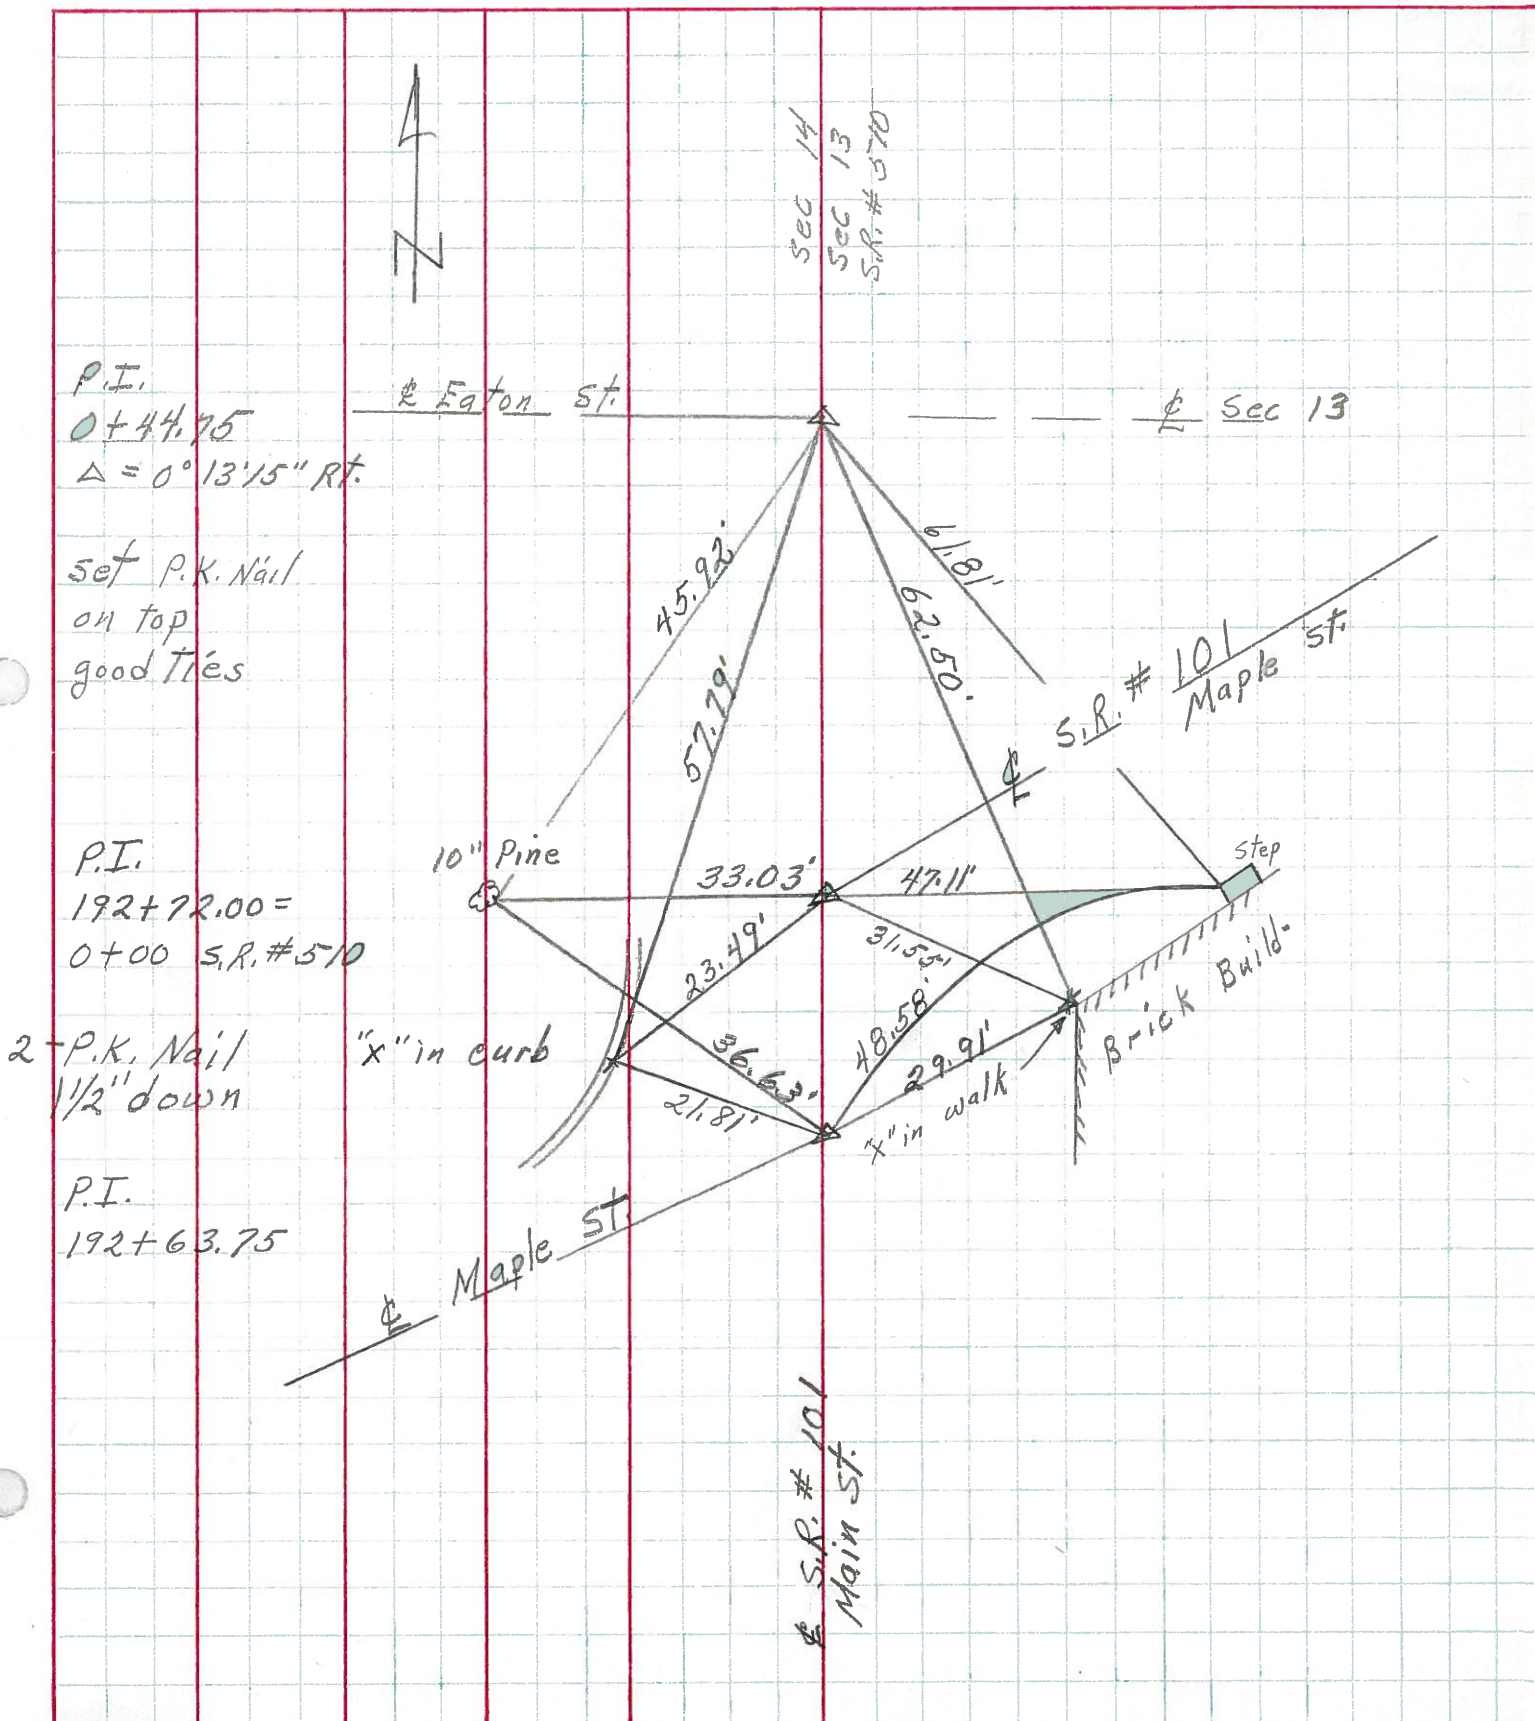 Sec 14
Sec 13
S.R. # 510
N
P.I.
0+44.75
△ = 0° 13' 15" Rt.
℄ Eaton St.
℄ Sec 13
set P.K. Nail
on top
good Ties
45.92'
57.79'
62.50'
61.81'
℄ S.R. # 101
Maple St.
P.I.
192+72.00 =
0+00 S.R. # 510
10" Pine
33.03'
47.11'
step
23.49'
31.55'
48.58'
Brick Build.
2-P.K. Nail
1 1/2" down
"x" in curb
36.63'
21.81'
29.91'
"x" in walk
P.I.
192+63.75
℄ Maple St.
℄ S.R. # 101
Main St.